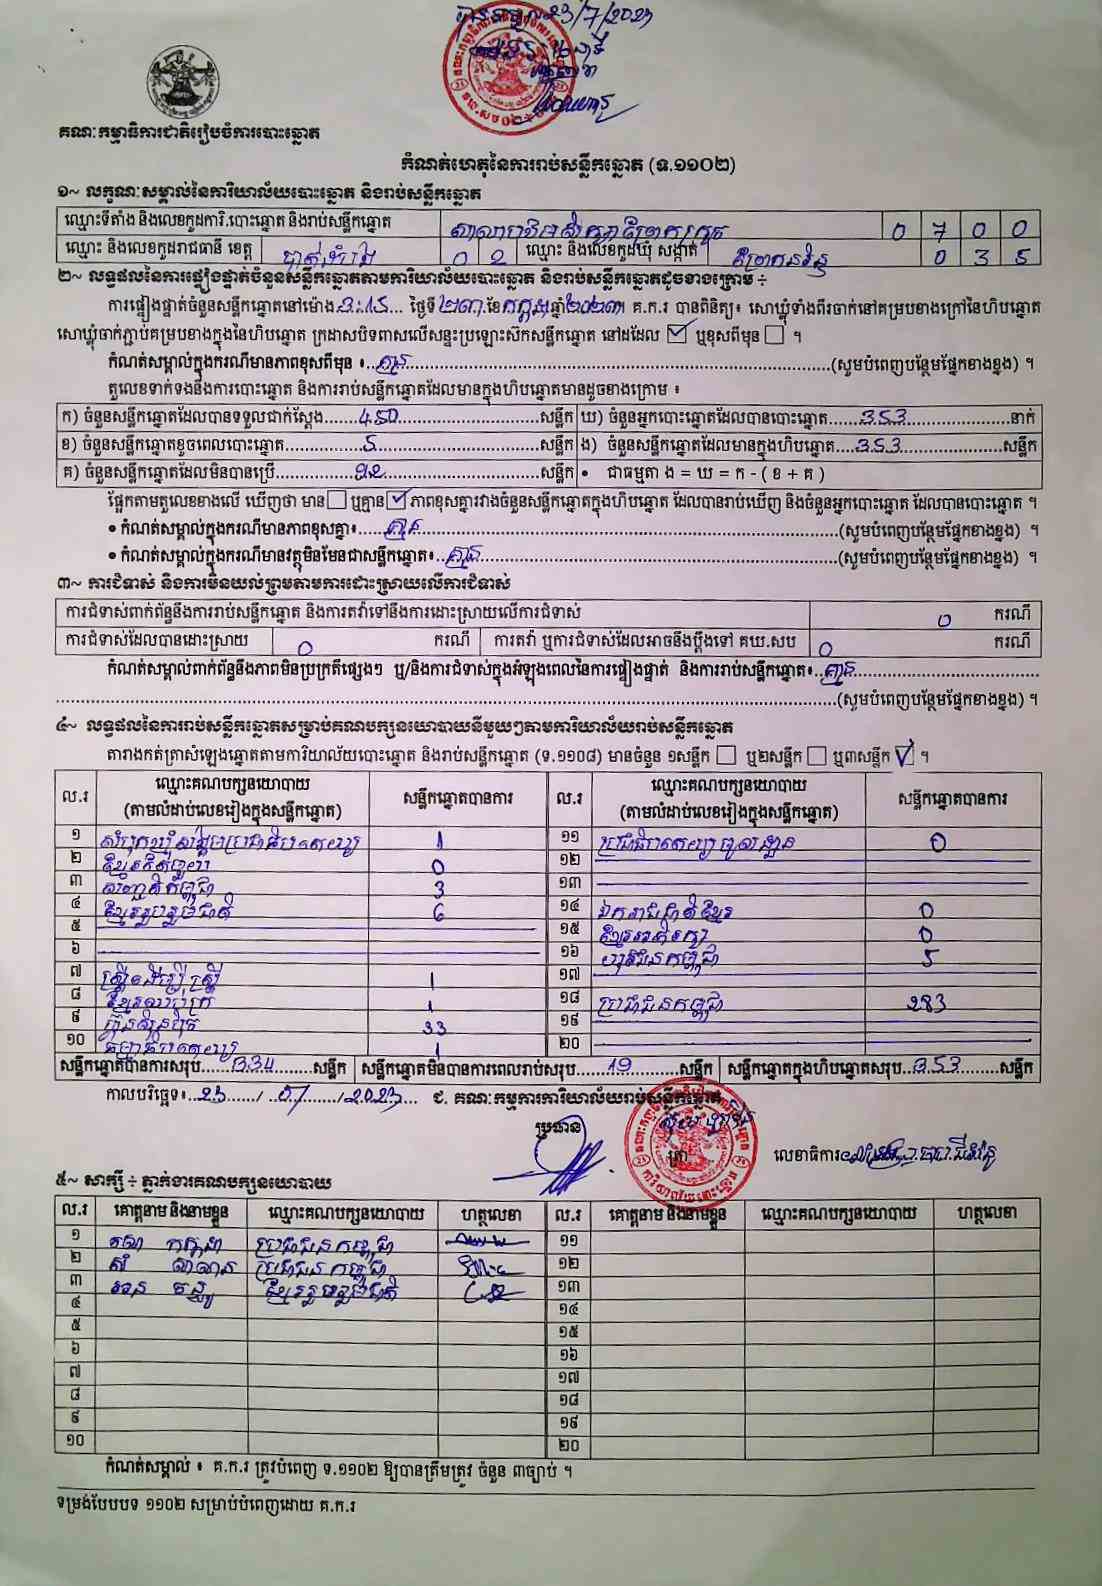 23/7/2023
គណៈកម្មាធិការជាតិរៀបចំការបោះឆ្នោត
កំណត់ហេតុនៃការរាប់សន្លឹកឆ្នោត (ទ.១១០២)
១~ លក្ខណៈសម្គាល់នៃការិយាល័យបោះឆ្នោត និងរាប់សន្លឹកឆ្នោត
ឈ្មោះទីតាំង និងលេខកូដការិ.បោះឆ្នោត និងរាប់សន្លឹកឆ្នោត 0 7 0 0
ឈ្មោះ និងលេខកូដរាជធានី ខេត្ត បាត់ដំបង 0 2 ឈ្មោះ និងលេខកូដឃុំ សង្កាត់ 0 3 5
២~ លទ្ធផលនៃការផ្ទៀងផ្ទាត់ចំនួនសន្លឹកឆ្នោតតាមការិយាល័យបោះឆ្នោត និងរាប់សន្លឹកឆ្នោតដូចខាងក្រោម ÷
ការផ្ទៀងផ្ទាត់ចំនួនសន្លឹកឆ្នោតនៅម៉ោង 3:15 ថ្ងៃទី ២៣ ខែ កក្កដា ឆ្នាំ ២០២៣ គ.ក.រ បានពិនិត្យ៖ សោឃ្លុំទាំងពីរចាក់នៅគម្របខាងក្រៅនៃហិបឆ្នោត
សោឃ្លុំចាក់ភ្ជាប់គម្របខាងក្នុងនៃហិបឆ្នោត ក្រដាសបិទពាសលើសន្ទះប្រឡោះស៊កសន្លឹកឆ្នោត នៅដដែល ☑ ឬខុសពីមុន ☐ ។
កំណត់សម្គាល់ក្នុងករណីមានភាពខុសពីមុន ៖ គ្មាន (សូមបំពេញបន្ថែមផ្នែកខាងខ្នង) ។
តួលេខទាក់ទងនឹងការបោះឆ្នោត និងការរាប់សន្លឹកឆ្នោតដែលមានក្នុងហិបឆ្នោតមានដូចខាងក្រោម ៖
ក) ចំនួនសន្លឹកឆ្នោតដែលបានទទួលជាក់ស្តែង 450 សន្លឹក ឃ) ចំនួនអ្នកបោះឆ្នោតដែលបានបោះឆ្នោត 353 នាក់
ខ) ចំនួនសន្លឹកឆ្នោតខូចពេលបោះឆ្នោត 5 សន្លឹក ង) ចំនួនសន្លឹកឆ្នោតដែលមានក្នុងហិបឆ្នោត 353 សន្លឹក
គ) ចំនួនសន្លឹកឆ្នោតដែលមិនបានប្រើ 92 សន្លឹក • ជាធម្មតា ង = ឃ = ក - ( ខ + គ )
ផ្អែកតាមតួលេខខាងលើ ឃើញថា មាន ☐ ឬគ្មាន ☑ ភាពខុសគ្នារវាងចំនួនសន្លឹកឆ្នោតក្នុងហិបឆ្នោត ដែលបានរាប់ឃើញ និងចំនួនអ្នកបោះឆ្នោត ដែលបានបោះឆ្នោត ។
• កំណត់សម្គាល់ក្នុងករណីមានភាពខុសគ្នា៖ គ្មាន (សូមបំពេញបន្ថែមផ្នែកខាងខ្នង) ។
• កំណត់សម្គាល់ក្នុងករណីមានវត្ថុមិនមែនជាសន្លឹកឆ្នោត៖ គ្មាន (សូមបំពេញបន្ថែមផ្នែកខាងខ្នង) ។
៣~ ការជំទាស់ និងការមិនយល់ព្រមតាមការដោះស្រាយលើការជំទាស់
ការជំទាស់ពាក់ព័ន្ធនឹងការរាប់សន្លឹកឆ្នោត និងការតវ៉ាទៅនឹងការដោះស្រាយលើការជំទាស់ 0 ករណី
ការជំទាស់ដែលបានដោះស្រាយ 0 ករណី ការតវ៉ា ឬការជំទាស់ដែលអាចនឹងប្តឹងទៅ គឃ.សប 0 ករណី
កំណត់សម្គាល់ពាក់ព័ន្ធនឹងភាពមិនប្រក្រតីផ្សេងៗ ឬ/និងការជំទាស់ក្នុងអំឡុងពេលនៃការផ្ទៀងផ្ទាត់ និងការរាប់សន្លឹកឆ្នោត៖ គ្មាន
(សូមបំពេញបន្ថែមផ្នែកខាងខ្នង) ។
៤~ លទ្ធផលនៃការរាប់សន្លឹកឆ្នោតសម្រាប់គណបក្សនយោបាយនីមួយៗតាមការិយាល័យរាប់សន្លឹកឆ្នោត
តារាងកត់ត្រាសំឡេងឆ្នោតតាមការិយាល័យបោះឆ្នោត និងរាប់សន្លឹកឆ្នោត (ទ.១១០៨) មានចំនួន ១សន្លឹក ☐ ឬ២សន្លឹក ☐ ឬ៣សន្លឹក ☑ ។
ល.រ ឈ្មោះគណបក្សនយោបាយ (តាមលំដាប់លេខរៀងក្នុងសន្លឹកឆ្នោត) សន្លឹកឆ្នោតបានការ ល.រ ឈ្មោះគណបក្សនយោបាយ (តាមលំដាប់លេខរៀងក្នុងសន្លឹកឆ្នោត) សន្លឹកឆ្នោតបានការ
១ សំបុកឃ្មុំសង្គមប្រជាធិបតេយ្យ 1 ១១ 0
២ 0 ១២
៣ 3 ១៣
៤ ខ្មែររួបរួមជាតិ 6 ១៤ ឯករាជជាតិខ្មែរ 0
៥ ១៥ ខ្មែរអភិរក្ស 0
៦ ១៦ យុវជនកម្ពុជា 5
៧ ស្ត្រីដើម្បីស្ត្រី 1 ១៧
៨ ខ្មែរឈប់ក្រ 1 ១៨ ប្រជាជនកម្ពុជា 283
៩ ហ្វ៊ុនស៊ិនប៉ិច 33 ១៩
១០ 1 ២០
សន្លឹកឆ្នោតបានការសរុប 334 សន្លឹក សន្លឹកឆ្នោតមិនបានការពេលរាប់សរុប 19 សន្លឹក សន្លឹកឆ្នោតក្នុងហិបឆ្នោតសរុប 353 សន្លឹក
កាលបរិច្ឆេទ៖ 23 / 07 / 2023 ជ. គណៈកម្មការការិយាល័យរាប់សន្លឹកឆ្នោត
ប្រធាន ត្រា លេខាធិការ
៥~ សាក្សី ÷ ភ្នាក់ងារគណបក្សនយោបាយ
ល.រ គោត្តនាម និងនាមខ្លួន ឈ្មោះគណបក្សនយោបាយ ហត្ថលេខា ល.រ គោត្តនាម និងនាមខ្លួន ឈ្មោះគណបក្សនយោបាយ ហត្ថលេខា
១ ប្រជាជនកម្ពុជា ១១
២ ប្រជាជនកម្ពុជា ១២
៣ ខ្មែររួបរួមជាតិ ១៣
៤ ១៤
៥ ១៥
៦ ១៦
៧ ១៧
៨ ១៨
៩ ១៩
១០ ២០
កំណត់សម្គាល់ ៖ គ.ក.រ ត្រូវបំពេញ ទ.១១០២ ឱ្យបានត្រឹមត្រូវ ចំនួន ៣ច្បាប់ ។
ទម្រង់បែបបទ ១១០២ សម្រាប់បំពេញដោយ គ.ក.រ